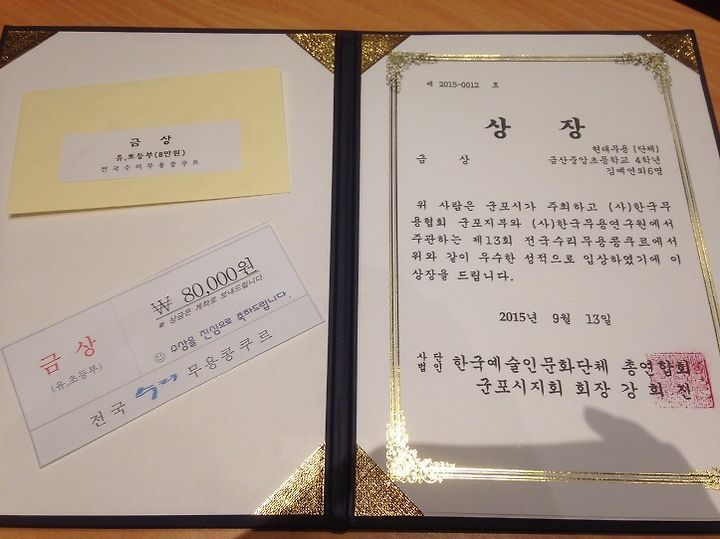 금 상
유,초등부(8만원)
전국수리무용콩쿠르
₩ 80,000원
※ 상금은 계좌로 보내드립니다.
금 상
(유,초등부)
☺ 수상을 진심으로 축하드립니다.
전국 수리 무용콩쿠르
제 2015-0012 호
상 장
현대무용 (단체)
금 상 금산중앙초등학교 4학년
김예연외6명
위 사람은 군포시가 주최하고 (사)한국무
용협회 군포지부와 (사)한국무용연구원에서
주관하는 제13회 전국수리무용콩쿠르에서
위와 같이 우수한 성적으로 입상하였기에 이
상장을 드립니다.
2015년 9월 13일
사단
법인 한국예술인문화단체 총연합회
군포시지회 회장 강 희 전